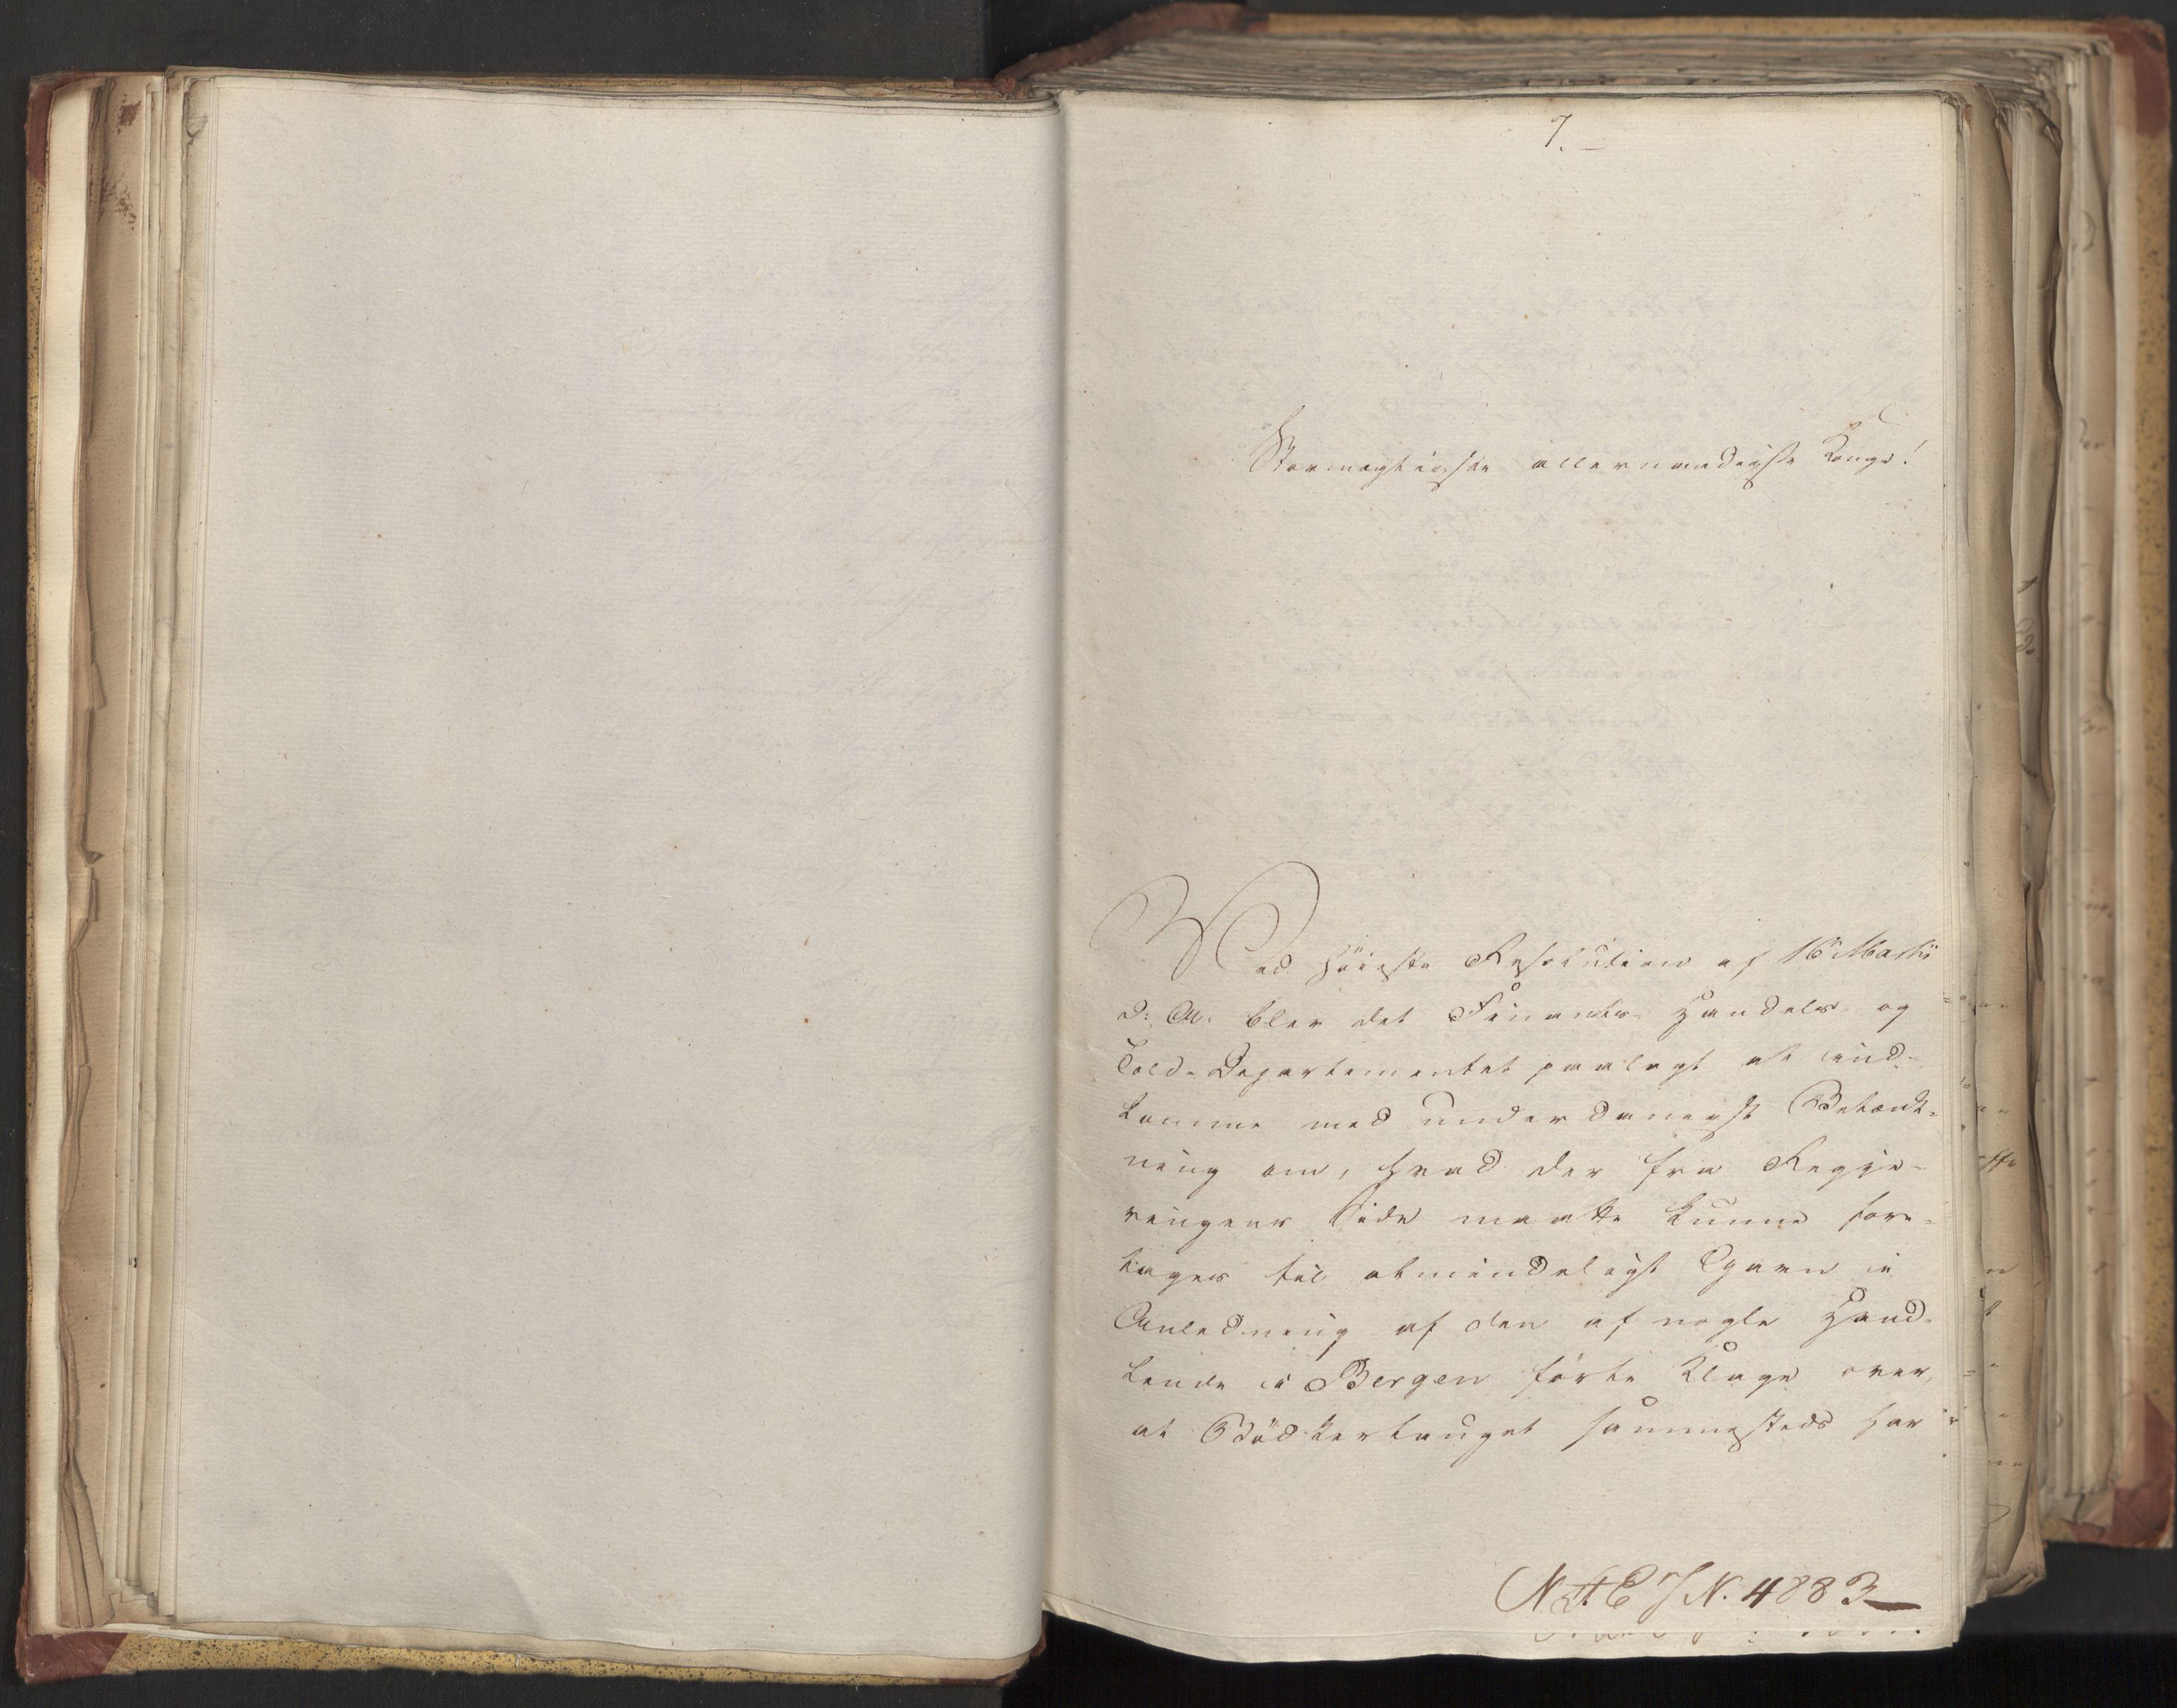 7.
Stormægtigste allernaadigste Konge!
Ved höieste Resolution af 16 Martii
d: A: blev det Finants- Handels- og
Told-Departementet paalagt at ind-
komme med underdanigst Betænk-
ning om, hvad der fra Regje-
ringens Side maatte kunne fore-
tages til almindeligt Gavn i
Anledning af den af nogle Hand-
lende i Bergen förte Klage over,
at Bödkerlauget sammesteds har
N. 4883